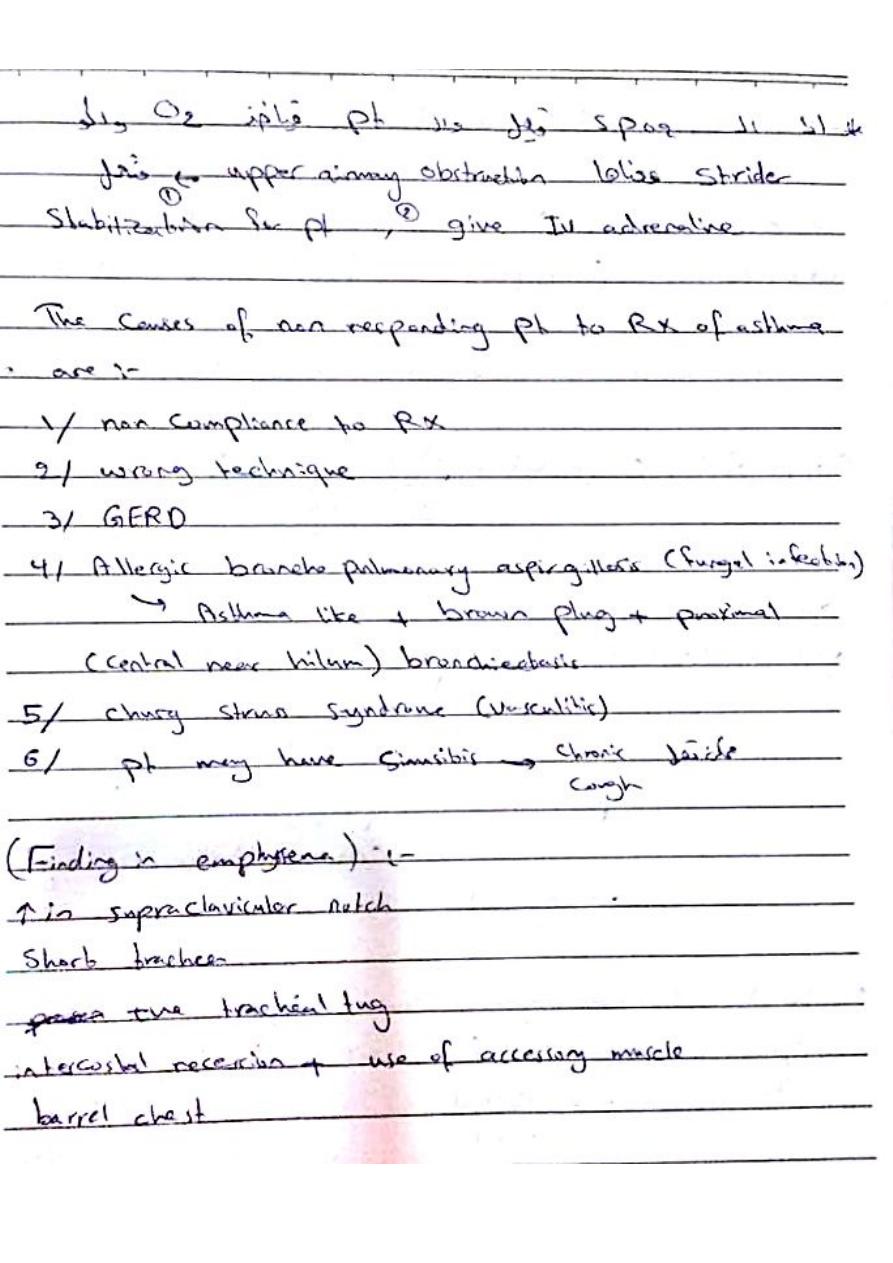 * اذا ال spaz قبل ولا pt قاقز O2 وله
Strider معناها upper airway obstruction ← فنعمل
① Stabilization for pt , ② give IV adrenaline
The causes of non responding pt to Rx of asthma
are :-
1/ non compliance to Rx
2/ wrong technique
3/ GERD
4/ Allergic broncho pulmonary aspirgillosis (fungal infection)
↳ Asthma like + brown plug + proximal
(central near hilum) bronchiectasis
5/ churg struss syndrome (vasculitic)
6/ pt may have sinusitis → chronic
cough
(Finding in emphysema) :-
↑ in supraclavicular notch
Short trachea
+ve tracheal tug
intercostal recession + use of accessory muscle
barrel chest